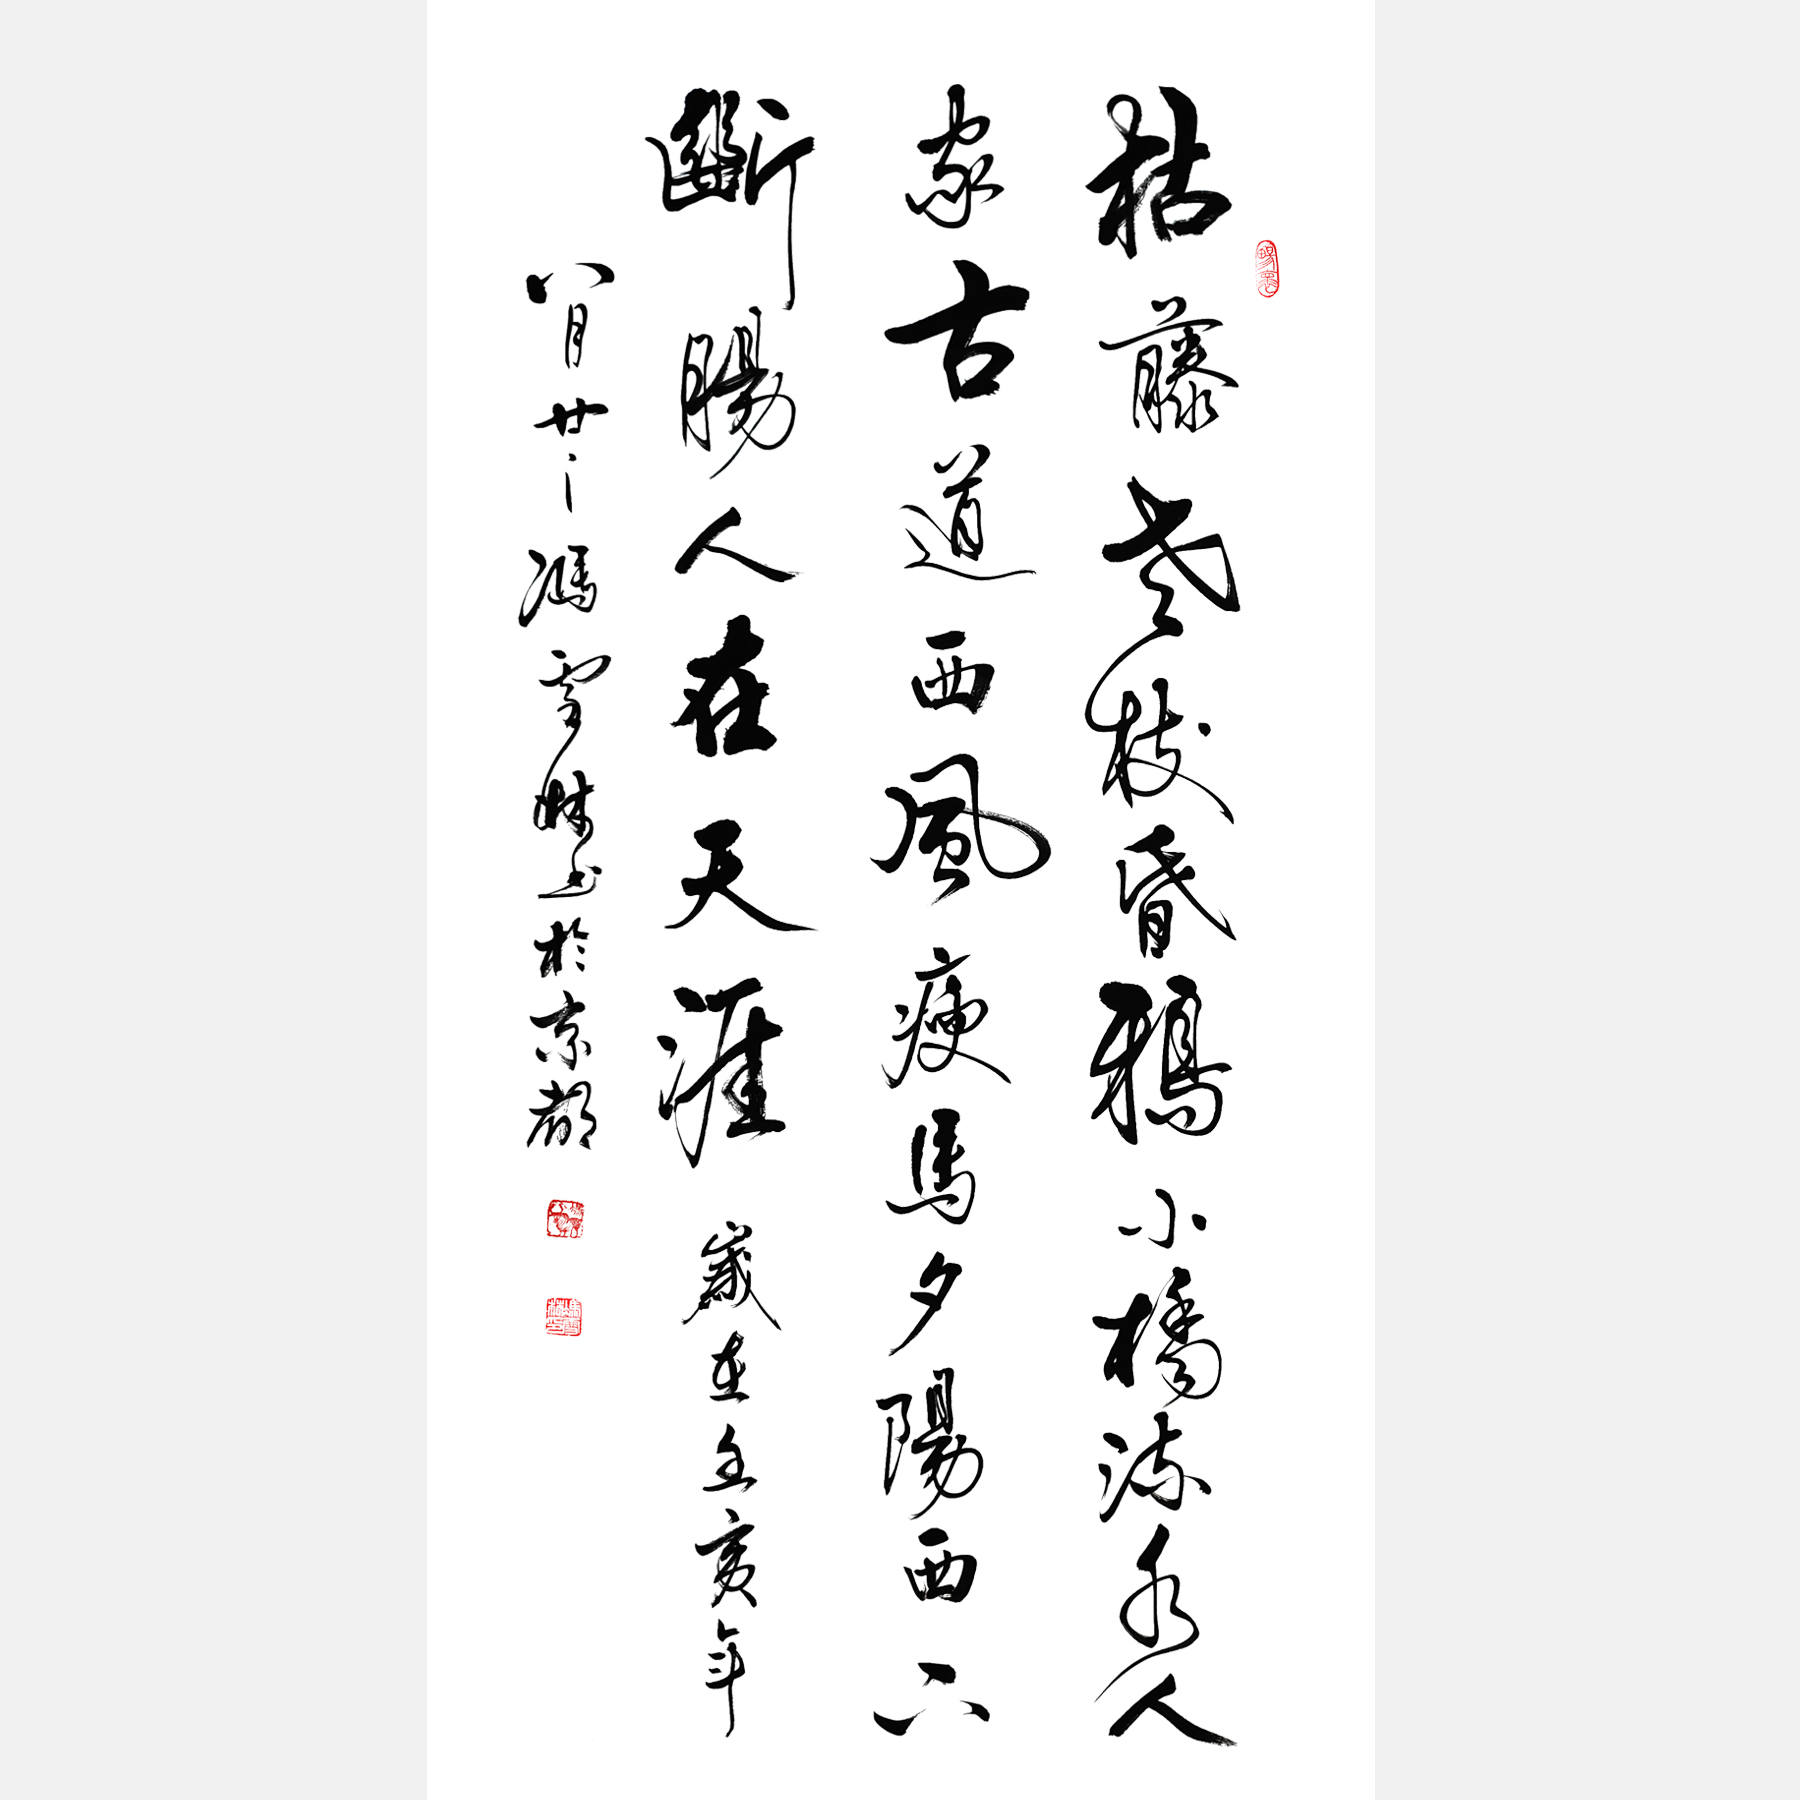 枯藤老树昏鴉小橋流水人
家古道西風瘦馬夕陽西下
斷腸人在天涯 歲在亥年
八月廿馮雪书於京都